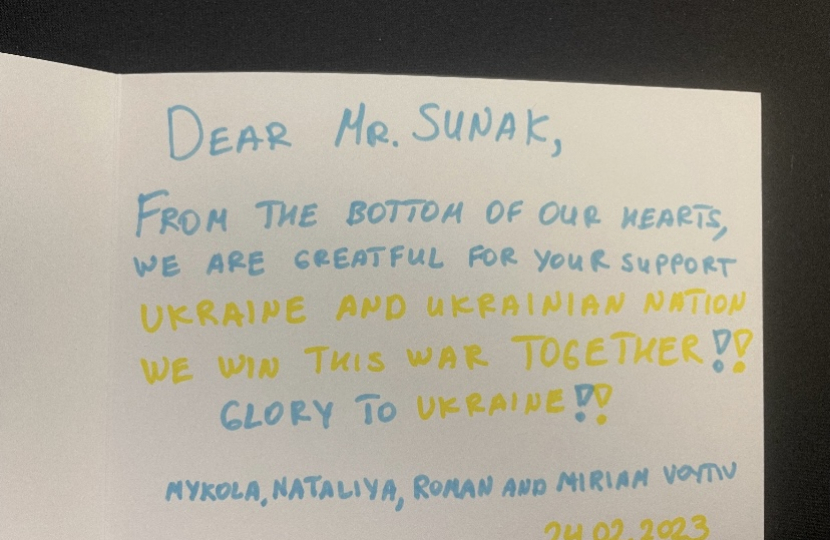 DEAR MR. SUNAK,
FROM THE BOTTOM OF OUR HEARTS,
WE ARE GREATFUL FOR YOUR SUPPORT
UKRAINE AND UKRAINIAN NATION
WE WIN THIS WAR TOGETHER!!
GLORY TO UKRAINE!!
MYKOLA, NATALIYA, ROMAN AND MIRIAM VOYTIV
24.02.2023